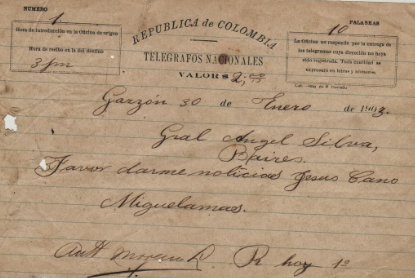 NUMERO
1
Hora de introducción en la Oficina de origen
Hora de recibo en la del destino
3 pm
REPUBLICA de COLOMBIA
TELEGRAFOS NACIONALES
VALOR $
PALABRAS
10
La Oficina no responde por la entrega de
los telegramas cuya dirección no haya
sido registrada. Toda
Garzón 30 de Enero de
Gral Angel Silva,
Baires.
Favor darme noticias Jesus Cano
Miguelamas.
R hoy 1º